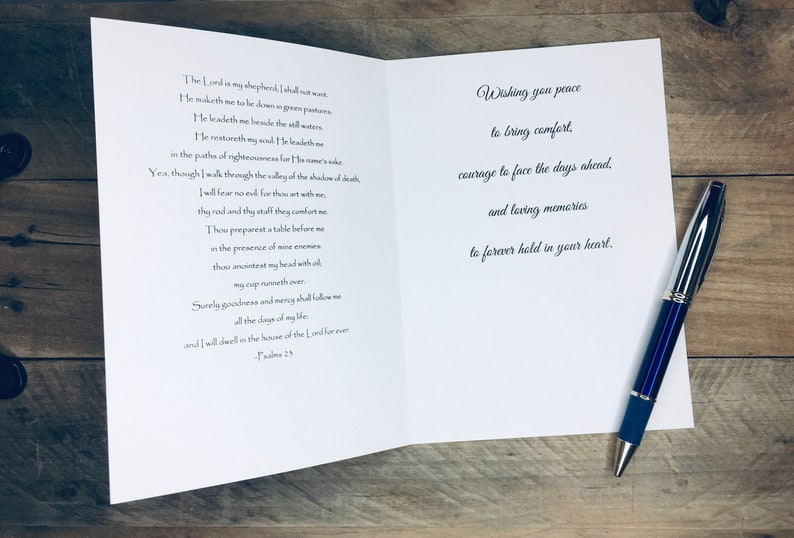 The Lord is my shepherd; I shall not want.
He maketh me to lie down in green pastures:
He leadeth me beside the still waters.
He restoreth my soul: He leadeth me
in the paths of righteousness for His name's sake.
Yea, though I walk through the valley of the shadow of death,
I will fear no evil: for thou art with me;
thy rod and thy staff they comfort me.
Thou preparest a table before me
in the presence of mine enemies:
thou anointest my head with oil;
my cup runneth over.
Surely goodness and mercy shall follow me
all the days of my life:
and I will dwell in the house of the Lord for ever.
-Psalms 23
Wishing you peace
to bring comfort,
courage to face the days ahead,
and loving memories
to forever hold in your heart.